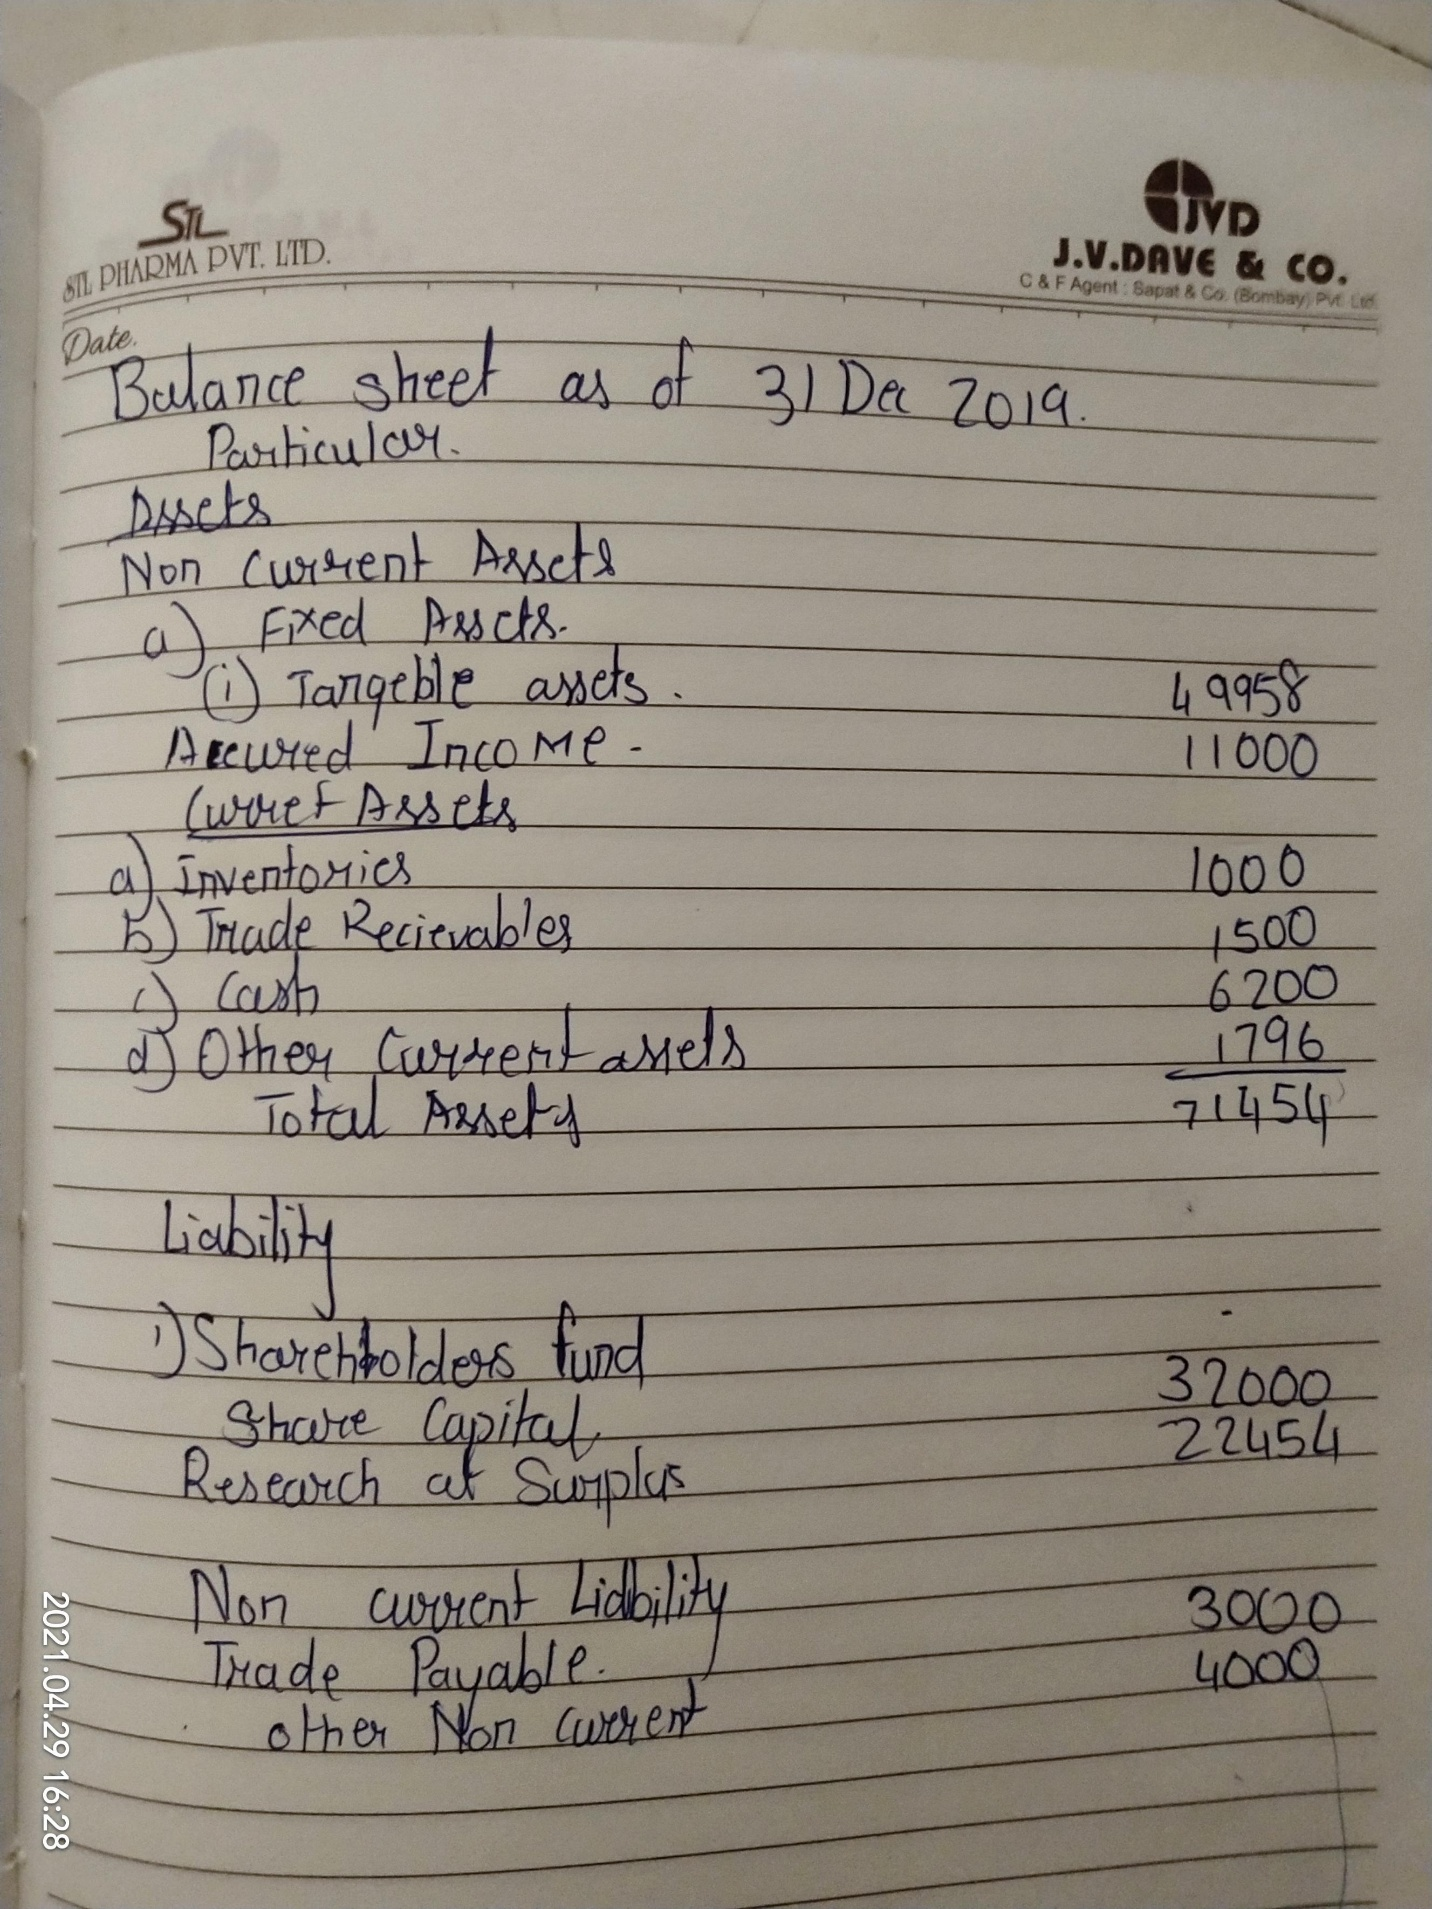 STL
STL PHARMA PVT. LTD.
JVD
J.V.DAVE & CO.
C & F Agent : Sapat & Co. (Bombay) Pvt. Ltd.
Date.
Balance sheet as of 31 Dec 2019.
Particular.
Assets
Non Current Assets
a) Fixed Assets.
(i) Tangeble assets. 49958
Accured Income - 11000
Curret Assets
a) Inventories 1000
b) Trade Recievables 1500
c) Cash 6200
d) Other Current assets 1796
Total Assets 71454
Liability
1) Shareholders fund
Share Capital 32000
Research at Surplus 22454
Non current Liability 3000
Trade Payable. 4000
other Non current
2021.04.29 16:28